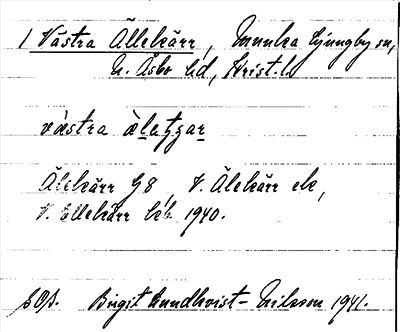 1 Västra Ällekärr, Munka Ljungby sn,
N. Åsbo hd, Krist. l.
västra älɐtʒɐr
Älekärr G8, V. Älekärr ek,
V. Ellekärr kb. 1940.
SOS. Birgit Lundkvist-Nilsson 1941.